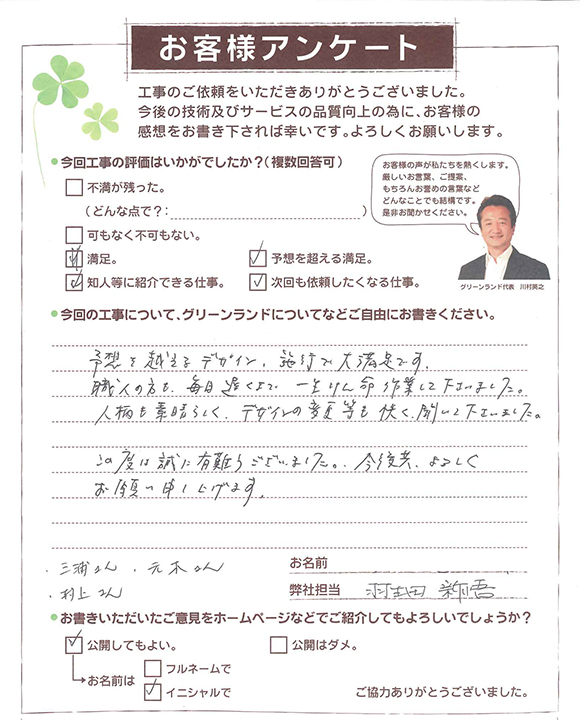 お客様アンケート
工事のご依頼をいただきありがとうございました。
今後の技術及びサービスの品質向上の為に、お客様の
感想をお書き下されば幸いです。よろしくお願いします。
今回工事の評価はいかがでしたか?(複数回答可)
不満が残った。
(どんな点で?: )
可もなく不可もない。
満足。
予想を超える満足。
知人等に紹介できる仕事。
次回も依頼したくなる仕事。
お客様の声が私たちを熱くします。
厳しいお言葉、ご提案、
もちろんお誉めの言葉など
どんなことでも結構です。
是非お聞かせください。
グリーンランド代表 川村英之
今回の工事について、グリーンランドについてなどご自由にお書きください。
予想を越えるデザイン、施行で大満足です。
職人の方も、毎日遅くまで一生けん命作業して下さいました。
人柄も素晴らしく、デザインの変更等も快く聞いて下さいました。
この度は誠に有難うございました。今後共、よろしく
お願い申し上げます。
・三浦さん ・元木さん
・村上さん
お名前
弊社担当 羽生田
お書きいただいたご意見をホームページなどでご紹介してもよろしいでしょうか?
公開してもよい。
公開はダメ。
お名前は
フルネームで
イニシャルで
ご協力ありがとうございました。